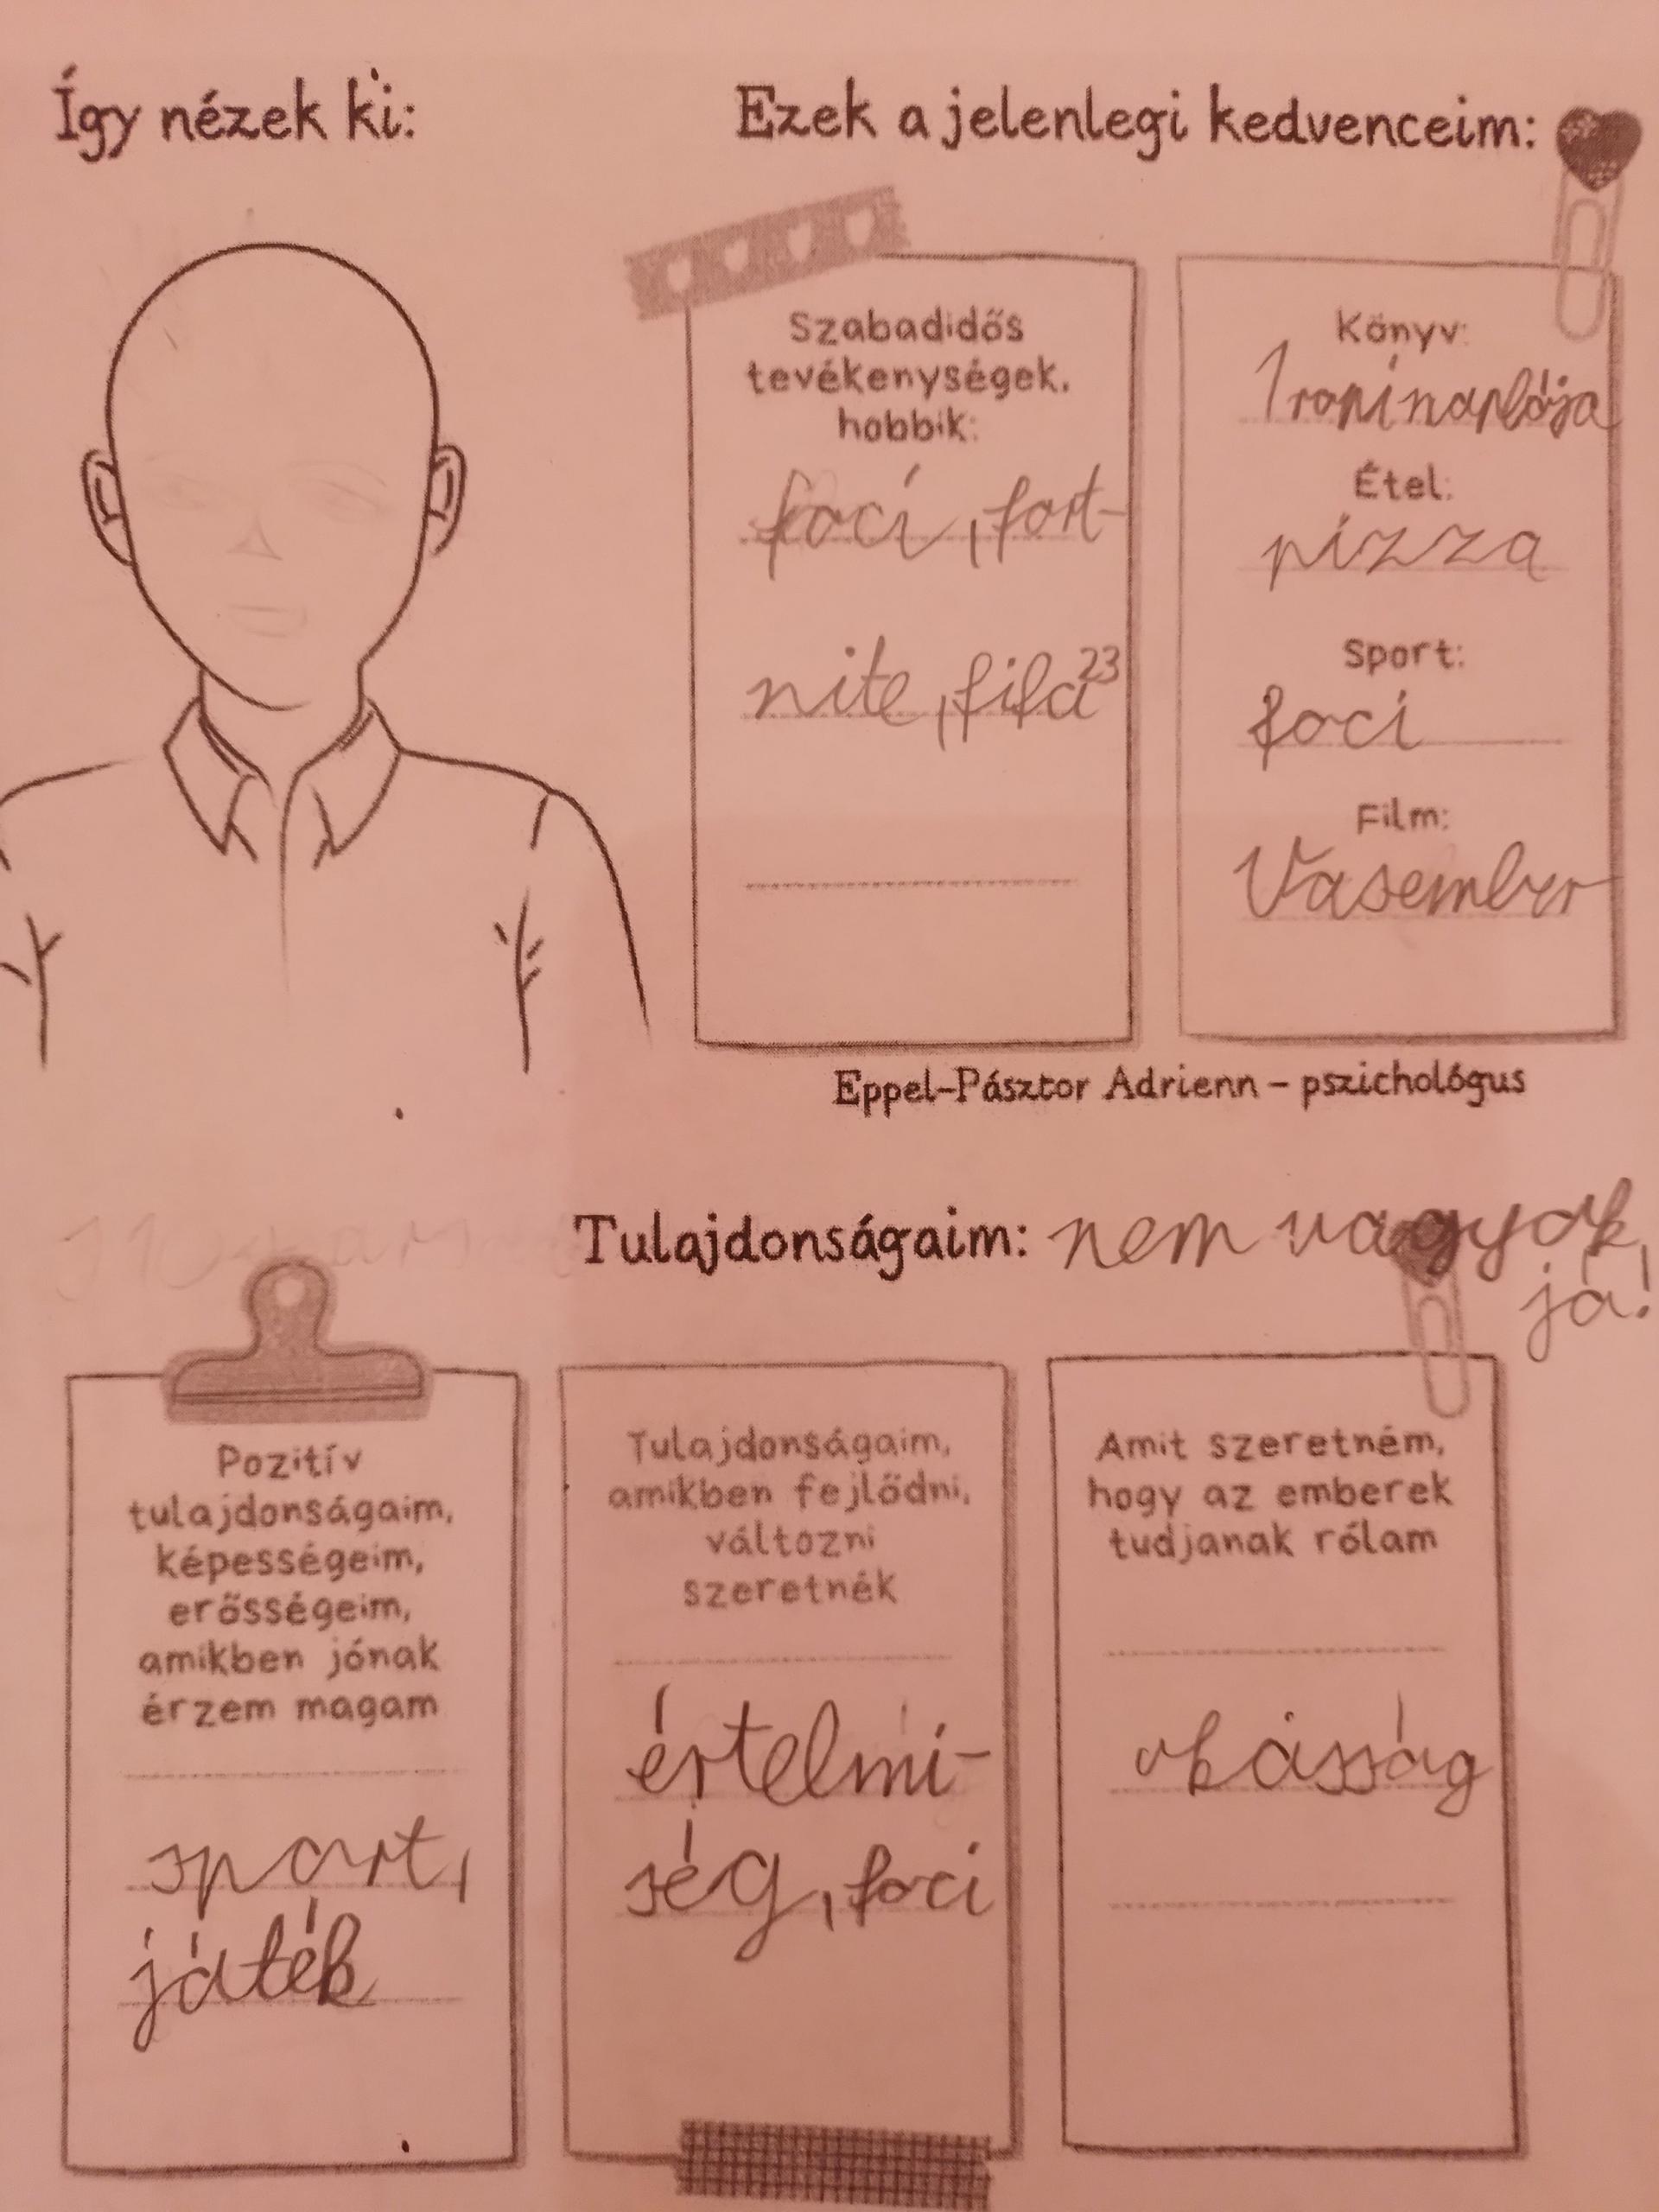 Így nézek ki:
Ezek a jelenlegi kedvenceim:
Szabadidős
tevékenységek,
hobbik:
foci, fort-
nite, fifa 23
Könyv:
1 ropi naplója
Étel:
pizza
Sport:
foci
Film:
Vasember
Eppel-Pásztor Adrienn – pszichológus
Tulajdonságaim: nem vagyok
jó!
Pozitív
tulajdonságaim,
képességeim,
erősségeim,
amikben jónak
érzem magam
sport,
játék
Tulajdonságaim,
amikben fejlődni,
változni
szeretnék
értelmi-
ség, foci
Amit szeretném,
hogy az emberek
tudjanak rólam
okásság